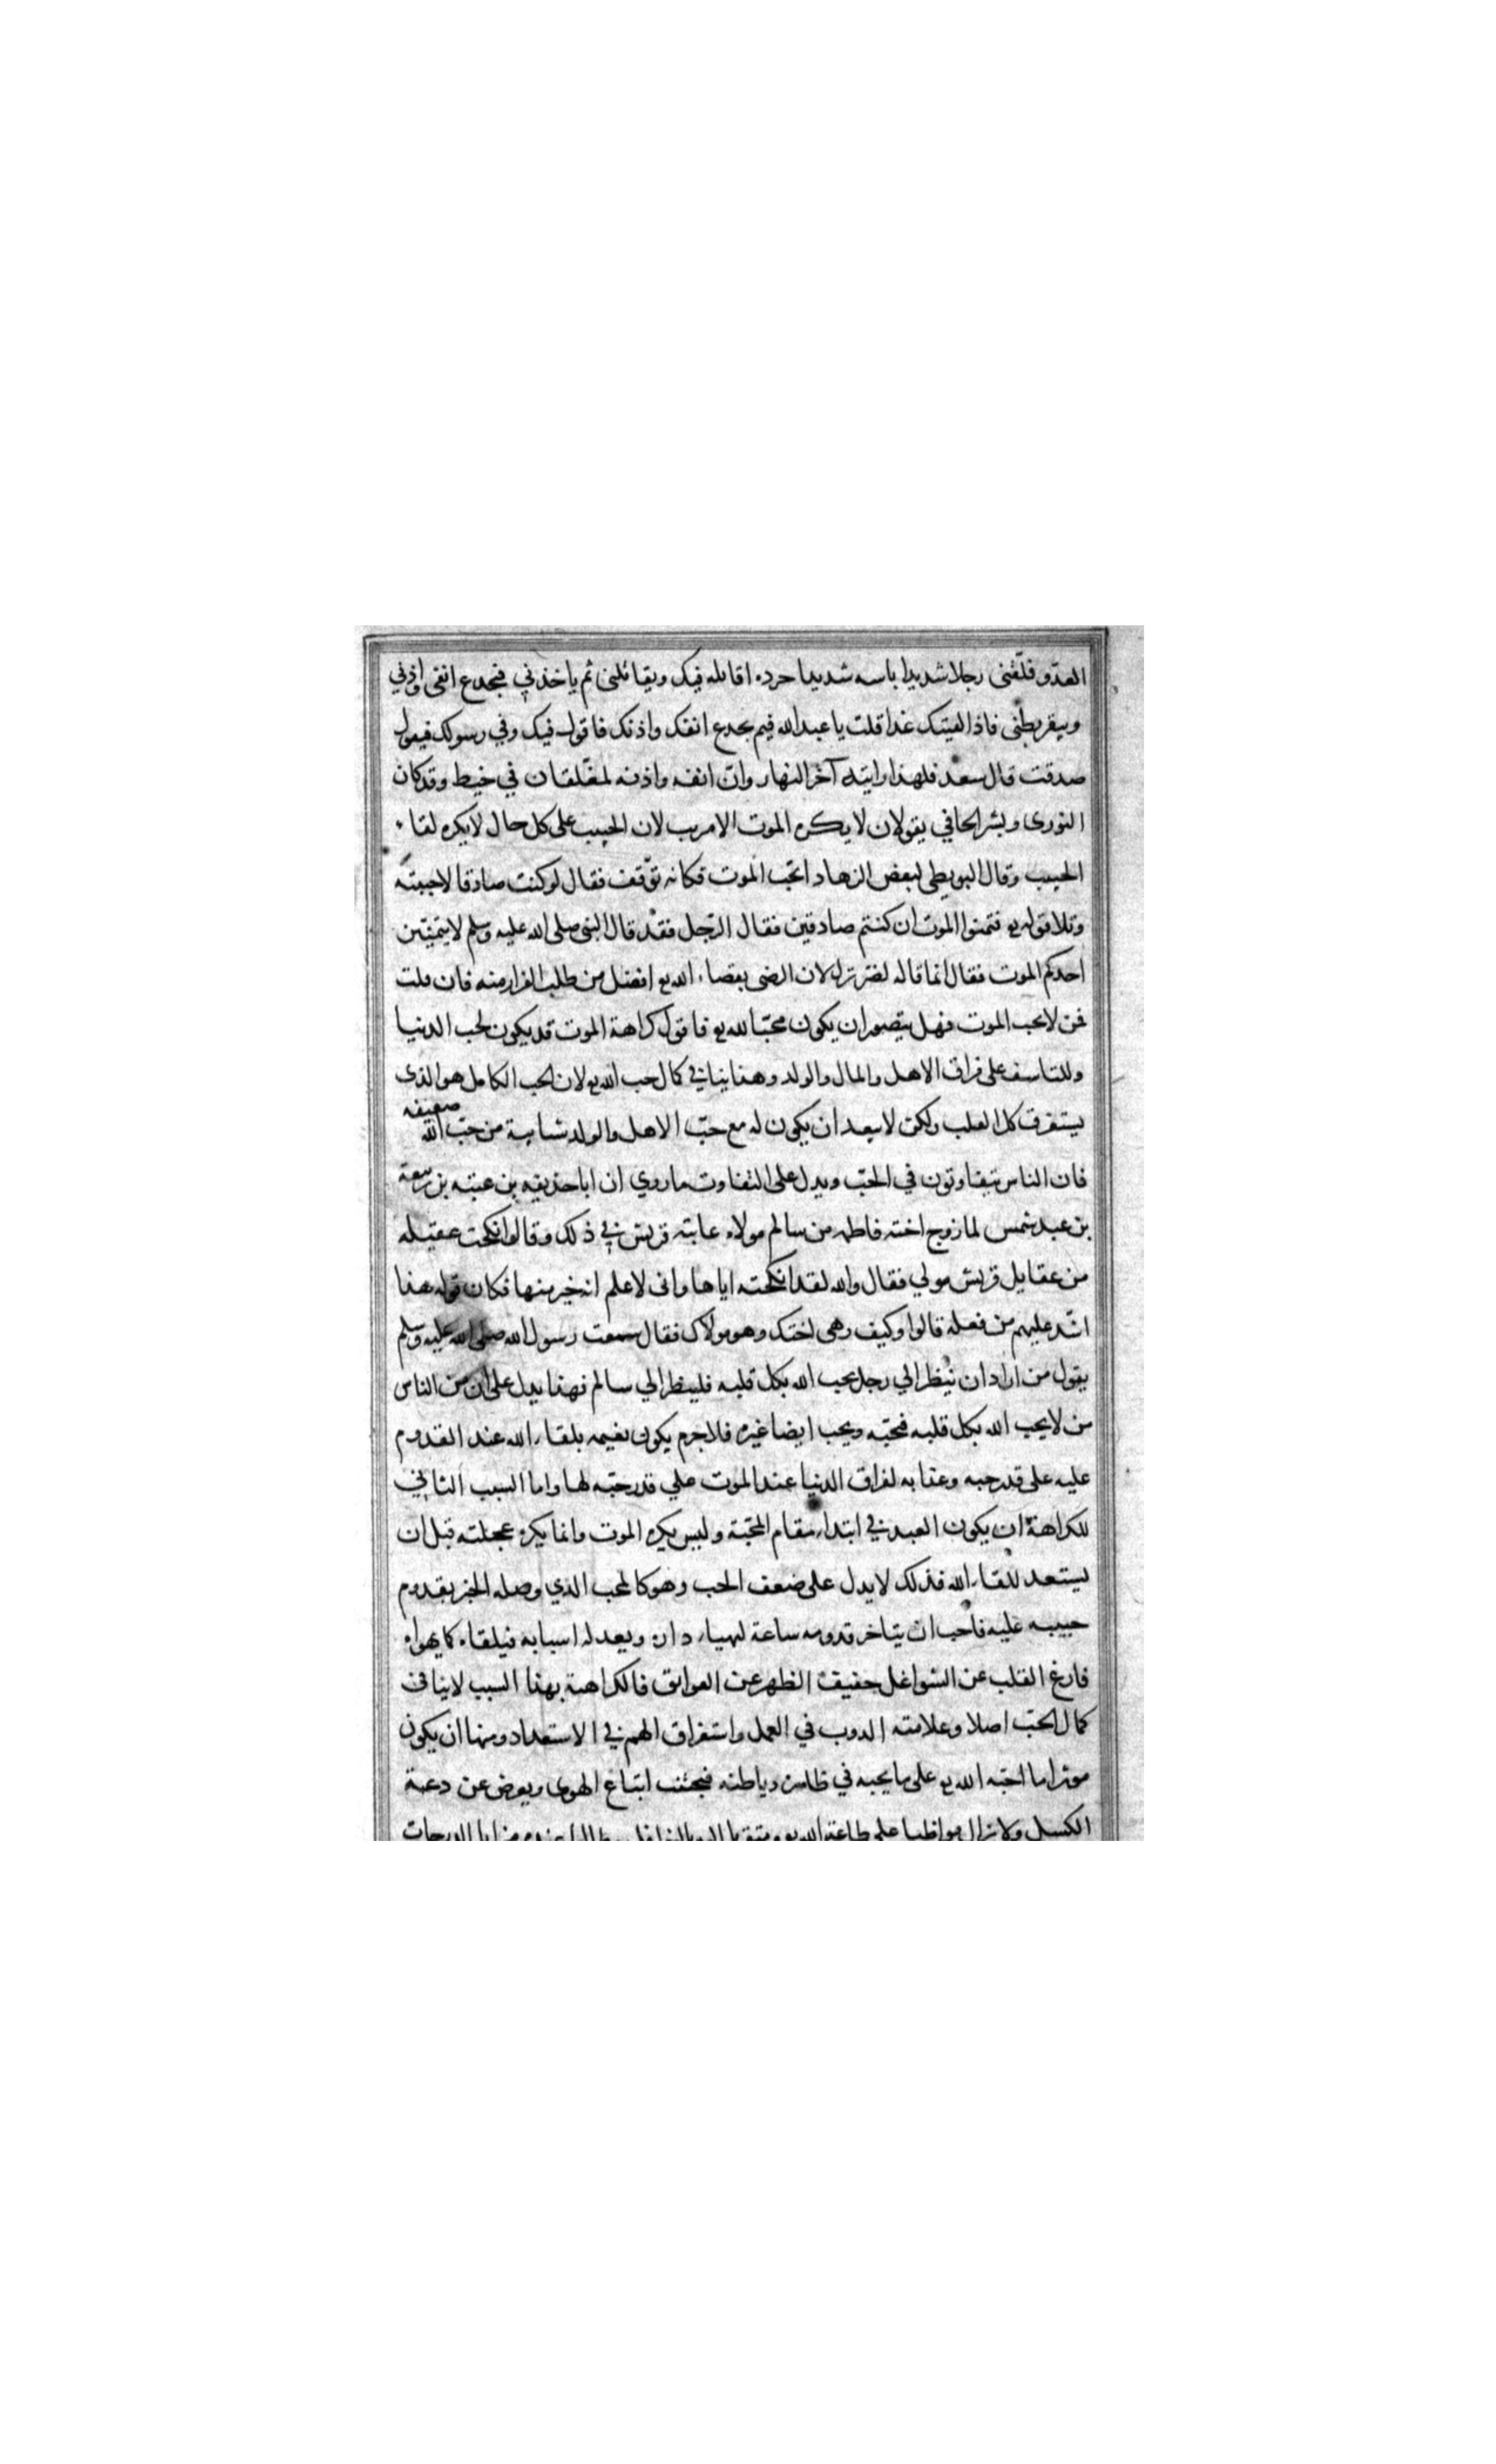 العدو فلقنى رجلا شديدا باسه شديدا حرده اقاتله فيك ويقاتلنى ثم ياخذني فيجدع انفى واذني
ويبقر بطنى فاذا لقيتك غدا قلت يا عبد الله فيم جدع انفك واذنك فاقول فيك وفي رسولك فيقول
صدقت قال سعد فلهذا رايته آخر النهار وان انفه واذنه لمعلقتان في خيط وقد كان
الثورى وبشر الحافي يقولان لا يكره الموت الا مريب لان الحبيب على كل حال لا يكره لقاء
الحبيب وقال البويطى لبعض الزهاد اتحب الموت فكانه توقف فقال لو كنت صادقا لاحببته
وتلا قوله تع فتمنوا الموت ان كنتم صادقين فقال الرجل فقد قال النبى صلى الله عليه وسلم لا يتمنين
احدكم الموت فقال انما قاله لضر نزل لان الرضى بقضاء الله تع افضل من طلب الفرار منه فان قلت
فمن لا يحب الموت فهل يتصور ان يكون محبا لله تع فاقول كراهة الموت قد يكون لحب الدنيا
وللتاسف على فراق الاهل والمال والولد وهذا ينافي كمال حب الله تع لان الحب الكامل هو الذى
يستغرق كل القلب ولكن لا يبعد ان يكون له مع حب الاهل والولد شايبة من حب الله ضعيفة
فان الناس يتفاوتون في الحب ويدل على التفاوت ما روي ان ابا حذيفه بن عتبه بن ربيعة
بن عبد شمس لما زوج اخته فاطمه من سالم مولاه عابته قريش في ذلك وقالوا انكحت عقيله
من عقايل قريش مولي فقال والله لقد انكحته اياها وانى لاعلم انه خير منها فكان قوله هذا
اشد عليهم من فعله قالوا وكيف وهى اختك وهو مولاك فقال سمعت رسول الله صلى الله عليه وسلم
يقول من اراد ان ينظر الي رجل يحب الله بكل قلبه فلينظر الي سالم فهذا يدل على ان من الناس
من لا يحب الله بكل قلبه فيحبه ويحب ايضا غيره فلا جرم يكون نعيمه بلقاء الله عند القدوم
عليه على قدر حبه وعذابه لفراق الدنيا عند الموت على قدر حبه لها واما السبب الثاني
للكراهة ان يكون العبد في ابتداء مقام المحبة وليس يكره الموت وانما يكره عجلته قبل ان
يستعد للقاء الله فذلك لا يدل على ضعف الحب وهو كالمحب الذي وصله الخبر بقدوم
حبيبه عليه فاحب ان يتاخر قدومه ساعة ليهياء داره ويعد له اسبابه فيلقاه كما يهواه
فارغ القلب عن الشواغل خفيف الظهر عن العوايق فالكراهة بهذا السبب لا ينافى
كمال الحب اصلا وعلامته الدوب في العمل واستغراق الهم في الاستعداد ومنها ان يكون
موثرا ما احبه الله تع على ما يحبه في ظاهره وباطنه فيجتنب اتباع الهوى ويعرض عن دعة
الكسل ولا يزال مواظبا على طاعة الله تع ومتقربا اليه بالنوافل وطالبا عنده مزايا الدرجات